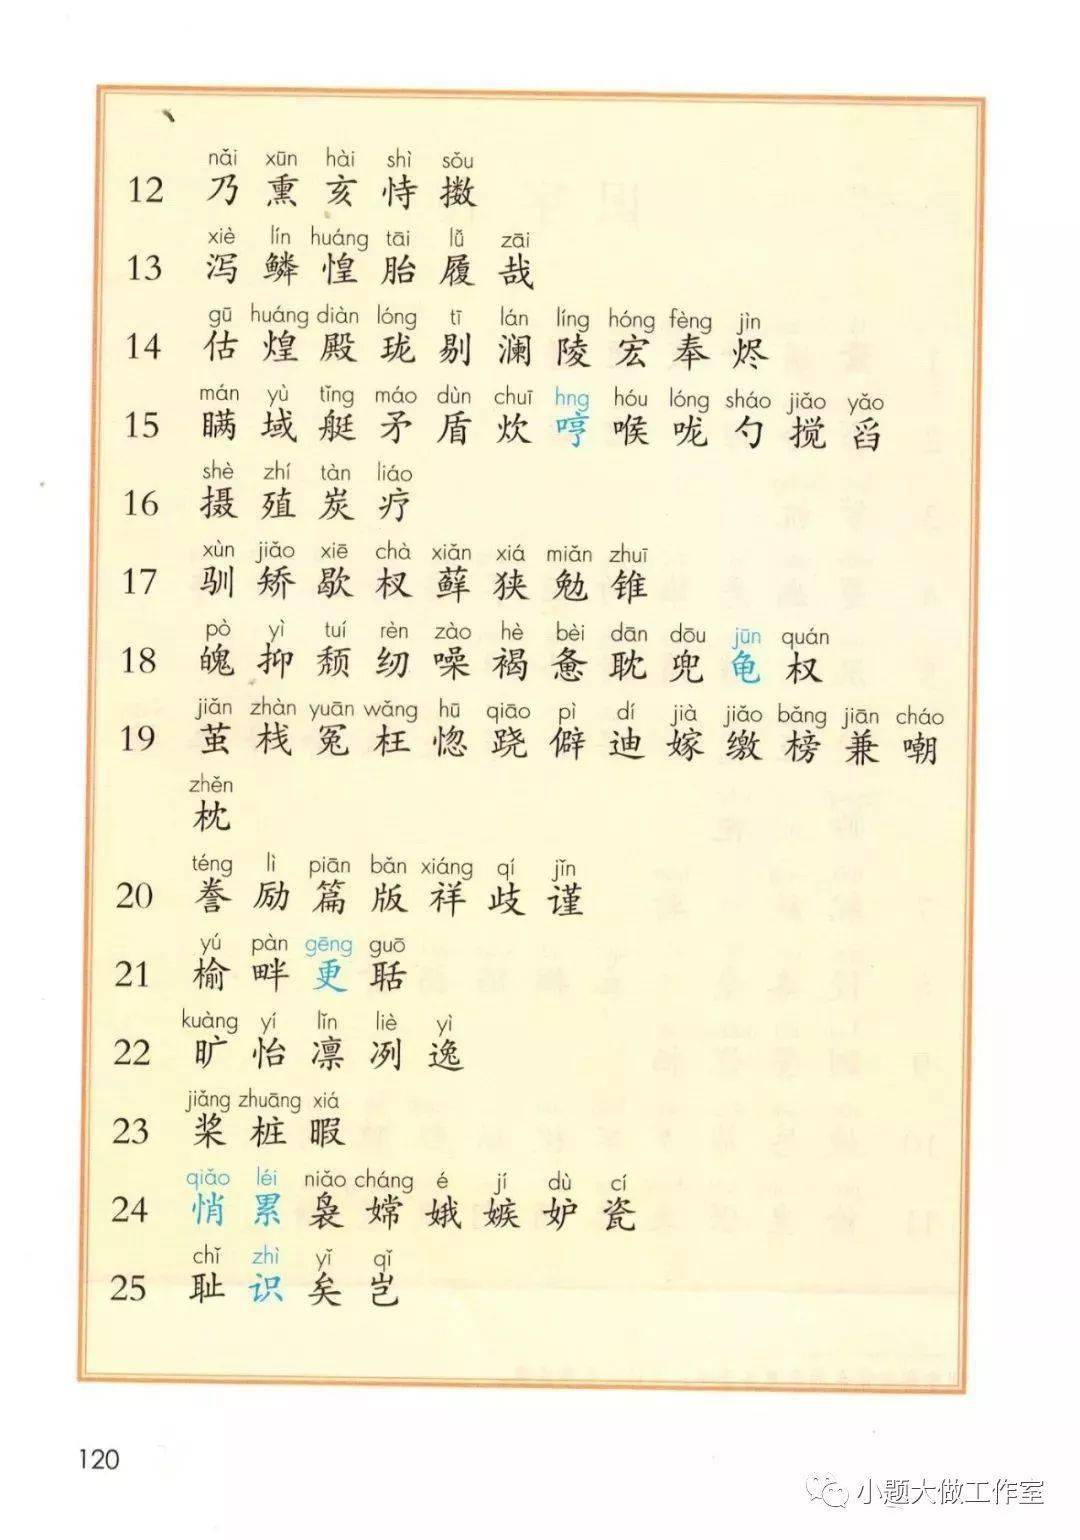 nǎi xūn hài shì sǒu
12 乃 熏 亥 恃 擞
xiè lín huáng tāi lǚ zāi
13 泻 鳞 惶 胎 履 哉
gū huáng diàn lóng tī lán líng hóng fèng jìn
14 估 煌 殿 珑 剔 澜 陵 宏 奉 烬
mán yù tǐng máo dùn chuī hng hóu lóng sháo jiǎo yǎo
15 瞒 域 艇 矛 盾 炊 哼 喉 咙 勺 搅 舀
shè zhí tàn liáo
16 摄 殖 炭 疗
xùn jiǎo xiē chà xiǎn xiá miǎn zhuī
17 驯 矫 歇 杈 藓 狭 勉 锥
pò yì tuí rèn zào hè bèi dān dōu jūn quán
18 魄 抑 颓 纫 噪 褐 惫 耽 兜 龟 权
jiǎn zhàn yuān wǎng hū qiāo pì dí jià jiǎo bǎng jiān cháo
19 茧 栈 冤 枉 惚 跷 僻 迪 嫁 缴 榜 兼 嘲
zhěn
枕
téng lì piān bǎn xiáng qí jǐn
20 誊 励 篇 版 祥 歧 谨
yú pàn gēng guō
21 榆 畔 更 聒
kuàng yí lǐn liè yì
22 旷 怡 凛 冽 逸
jiǎng zhuāng xiá
23 桨 桩 暇
qiǎo léi niǎo cháng é jí dù cí
24 悄 累 袅 嫦 娥 嫉 妒 瓷
chǐ zhì yǐ qǐ
25 耻 识 矣 岂
120
小题大做工作室